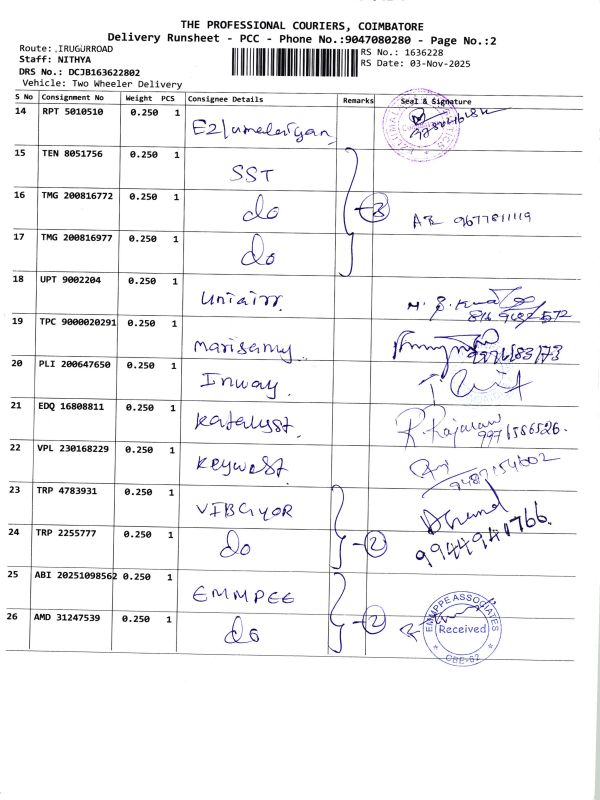 THE PROFESSIONAL COURIERS, COIMBATORE
Delivery Runsheet - PCC - Phone No.:9047080280 - Page No.:2
Route: .IRUGURROAD
Staff: NITHYA
RS No.: 1636228
DRS No.: DCJB163622802
RS Date: 03-Nov-2025
Vehicle: Two Wheeler Delivery
S No Consignment No Weight PCS Consignee Details Remarks Seal & Signature
14 RPT 5010510 0.250 1
15 TEN 8051756 0.250 1 SST
16 TMG 200816772 0.250 1 do 3 AR 9677811119
17 TMG 200816977 0.250 1 do
18 UPT 9002204 0.250 1 uniair
19 TPC 9000020291 0.250 1 Marisamy
20 PLI 200647650 0.250 1 Inway.
21 EDQ 16808811 0.250 1 Katalyst. R. Rajaram
9971586526.
22 VPL 230168229 0.250 1 Keywest. 9487154602
23 TRP 4783931 0.250 1 VIBGYOR
24 TRP 2255777 0.250 1 do 2 9944941766.
25 ABI 20251098562 0.250 1 EMMPEE
26 AMD 31247539 0.250 1 do 2 EMMPPE ASSOCIATES
Received
CBE-62